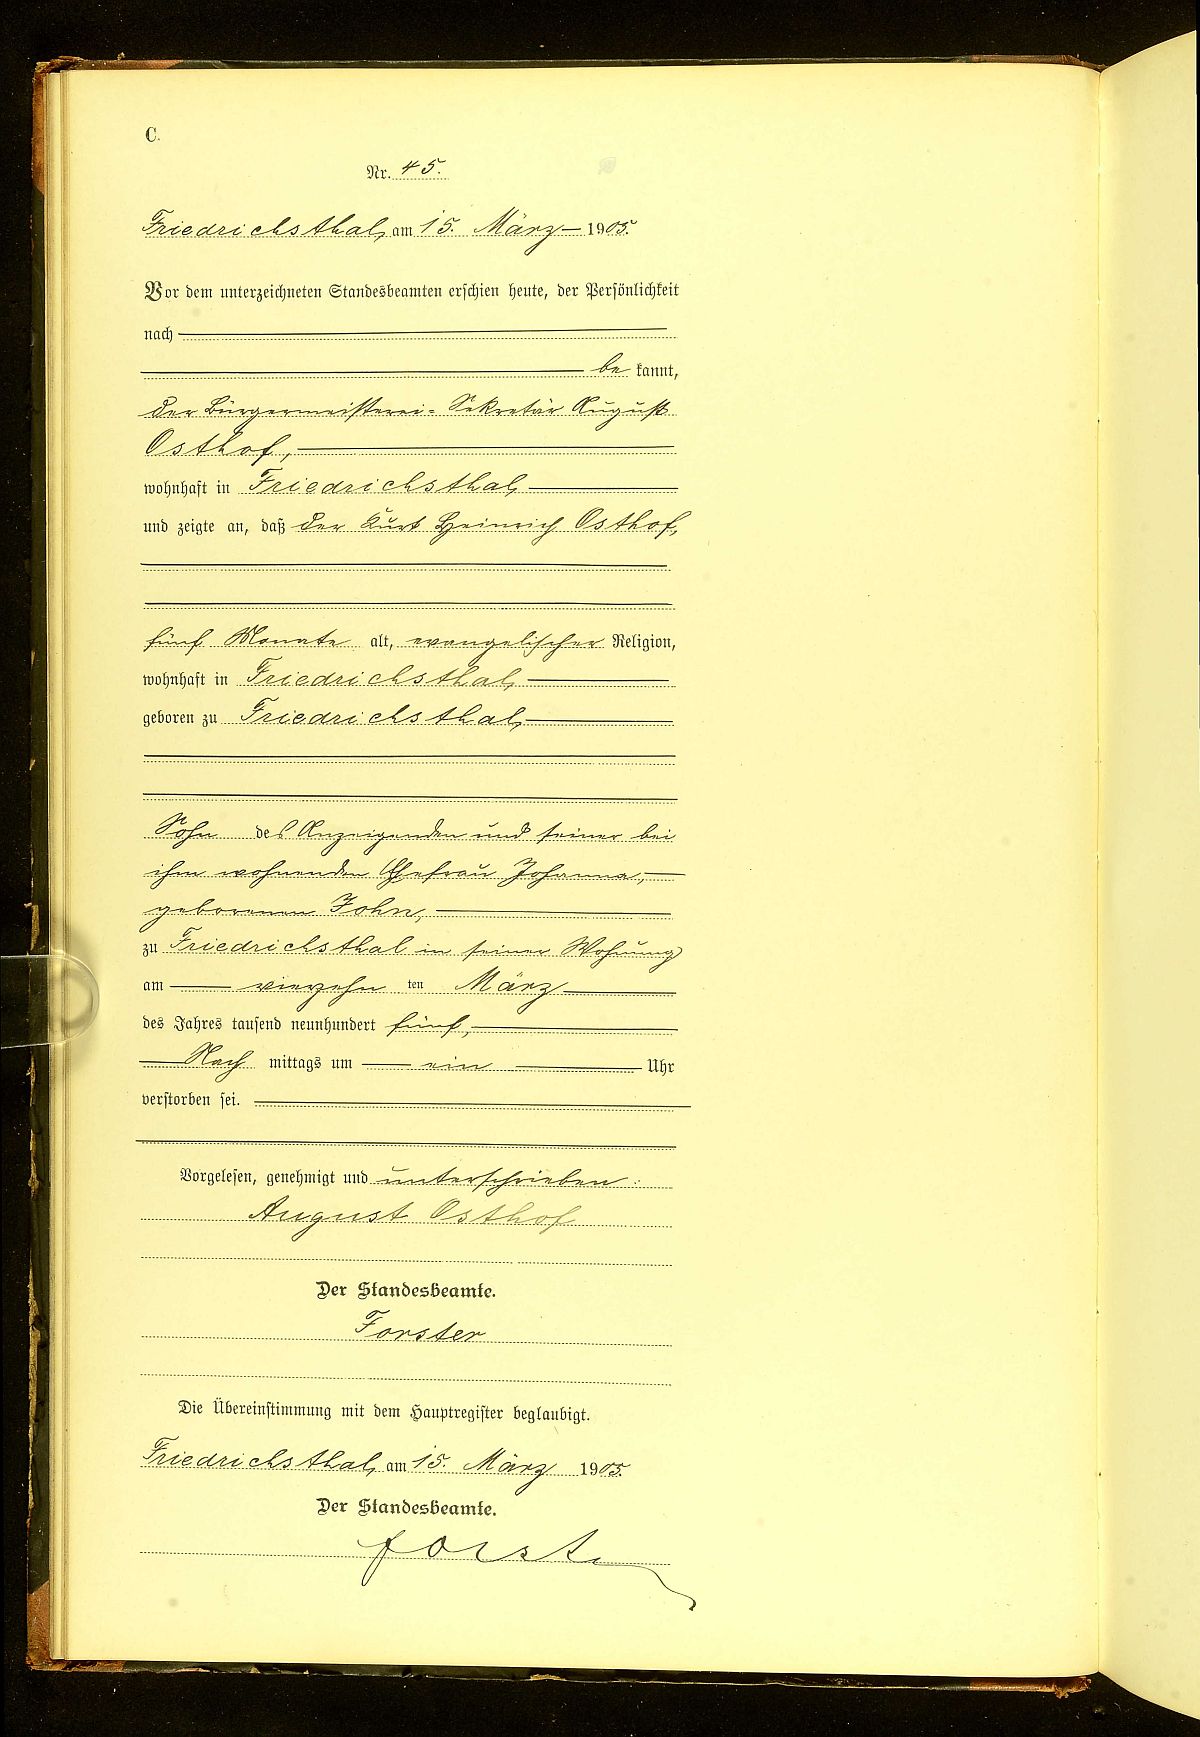 C.
Nr. 45.
Friedrichsthal, am 15. März 1905.
Vor dem unterzeichneten Standesbeamten erschien heute, der Persönlichkeit
nach
be kannt,
der Bürgermeisterei-Sekretär August
Osthof,
wohnhaft in Friedrichsthal,
und zeigte an, daß der Kurt Heinrich Osthof,
fünf Monate alt, evangelischer Religion,
wohnhaft in Friedrichsthal,
geboren zu Friedrichsthal,
Sohn des Anzeigenden und seiner bei
ihm wohnenden Ehefrau Johanna,
geborenen John,
zu Friedrichsthal in seiner Wohnung
am vierzehn ten März
des Jahres tausend neunhundert fünf,
Nach mittags um ein Uhr
verstorben sei.
Vorgelesen, genehmigt und unterschrieben:
August Osthof
Der Standesbeamte.
Forster
Die Übereinstimmung mit dem Hauptregister beglaubigt.
Friedrichsthal, am 15. März 1905.
Der Standesbeamte.
Forster